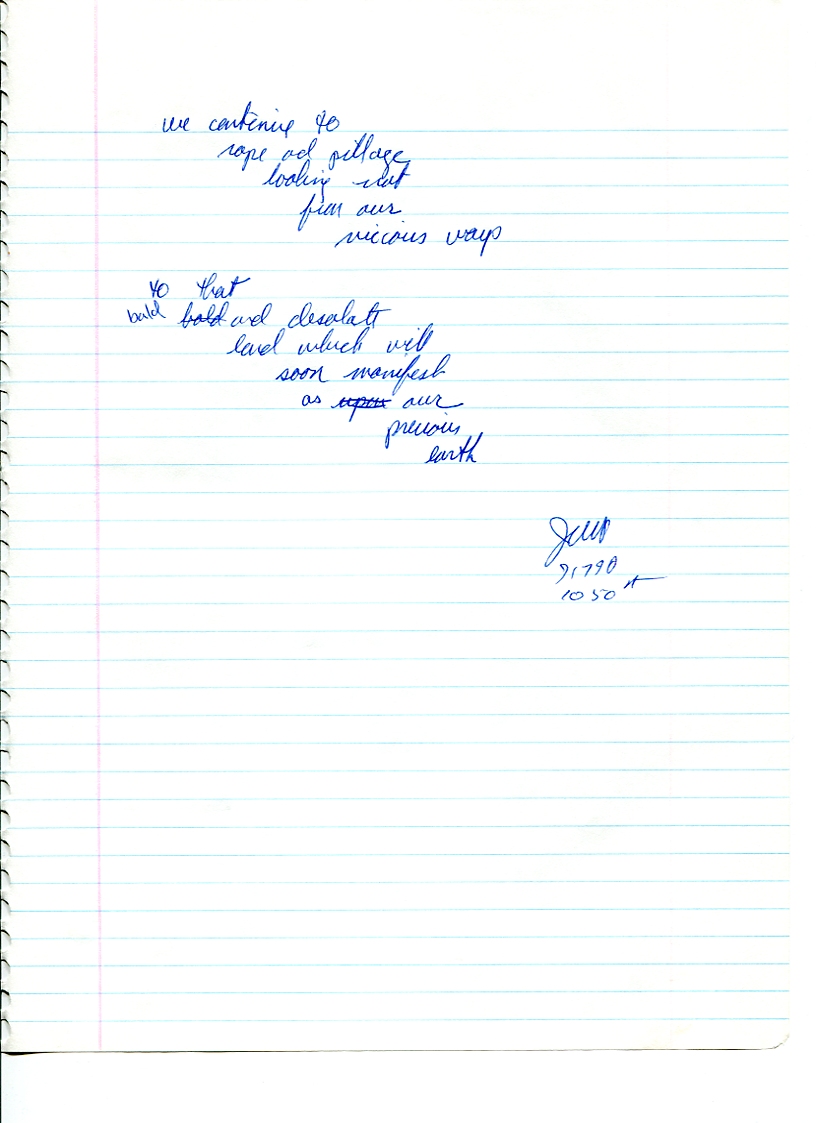 we continue to
rape ad pillage
looking not
from our
vicious ways
to that
bald bold and desolate
land which will
soon manifest
as upon our
precious
earth
91790
1050